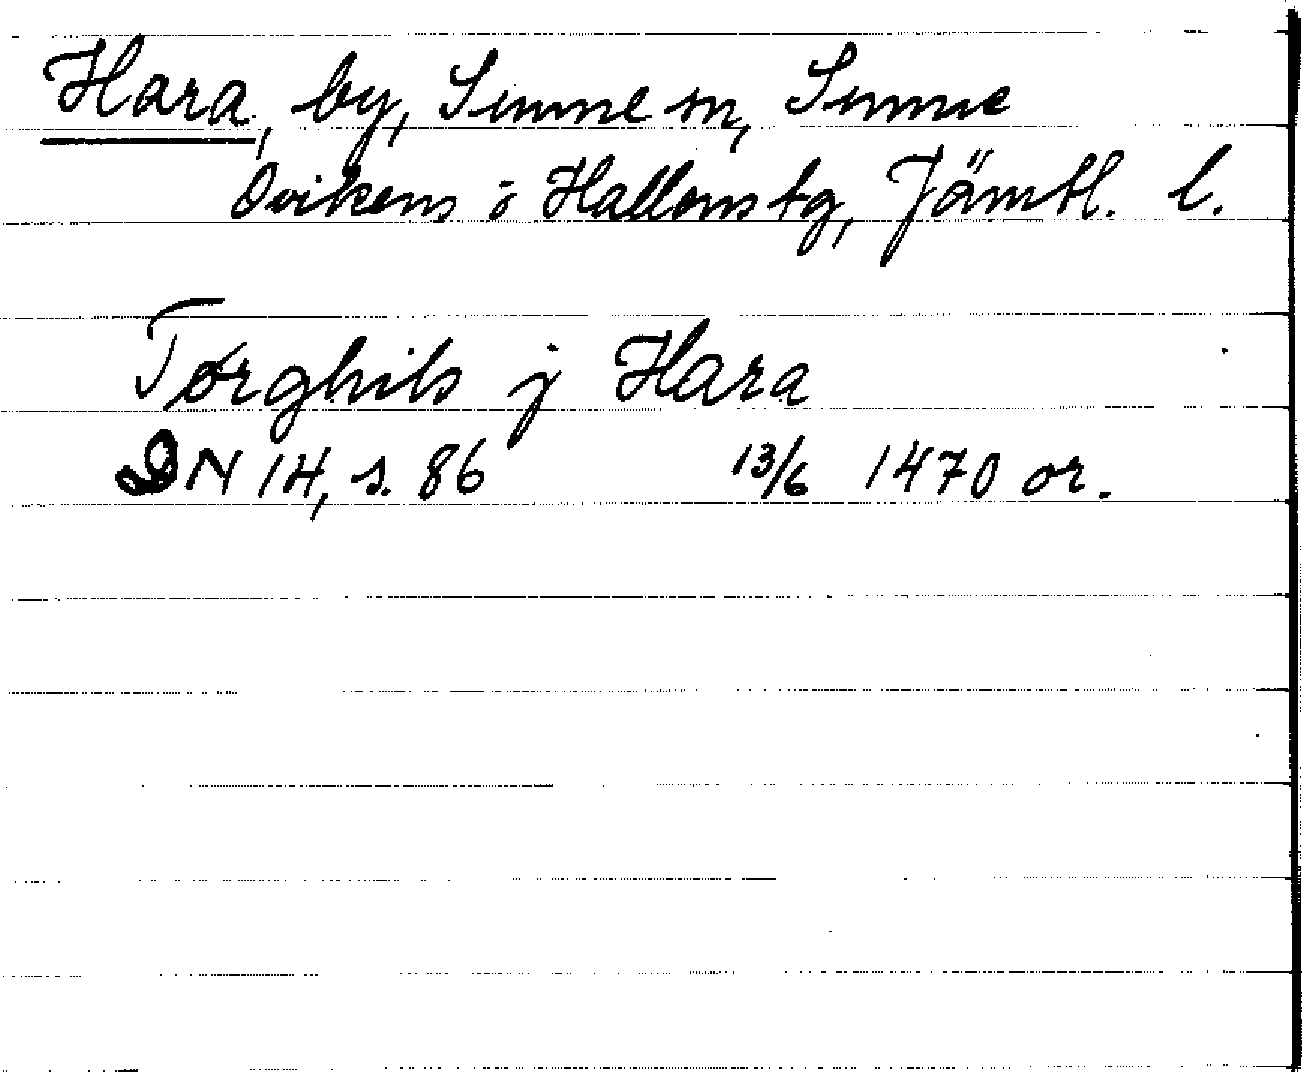 Hara, by, Sunne sn, Sunne
Ovikens o Hallens tg, Jämtl. l.
Tørghils j Hara
DN 14, s. 86 13/6 1470 or.